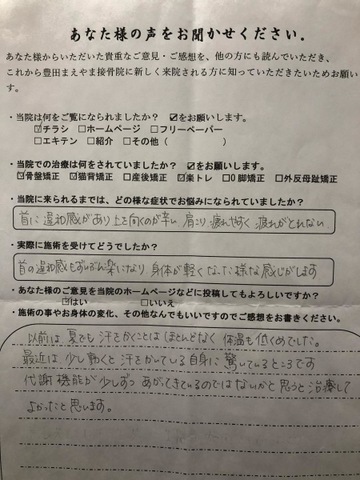 あなた様の声をお聞かせください。
あなた様からいただいた貴重なご意見・ご感想を、他の方にも読んでいただき、
これから豊田まえやま接骨院に新しく来院される方に知っていただきたいためお願い
す。
・当院は何をご覧になられましたか？ ☑をお願いします。
☑チラシ □ホームページ □フリーペーパー
□エキテン □紹介 □その他（ ）
・当院での治療は何をされていましたか？ ☑をお願いします。
☑骨盤矯正 ☑猫背矯正 □産後矯正 ☑楽トレ □O脚矯正 □外反母趾矯正
・当院に来られるまでは、どの様な症状でお悩みになられていましたか？
首に違和感があり上を向くのが辛い 肩こり 疲れやすく 疲れがとれない
・実際に施術を受けてどうでしたか？
首の違和感もずいぶん楽になり 身体が軽くなった様な感じがします
・あなた様のご意見を当院のホームページなどに投稿してもよろしいですか？
☑はい □いいえ
・施術の事やお身体の変化、その他なんでもいいですのでご感想をお書きください。
以前は 夏でも 汗をかくことは ほとんどなく 体温も 低くめでした。
最近は 少し動くと 汗をかいている自身に 驚いているところです
代謝機能が少しずつ あがってきているのではないかと思うと治療して
よかったと思います。